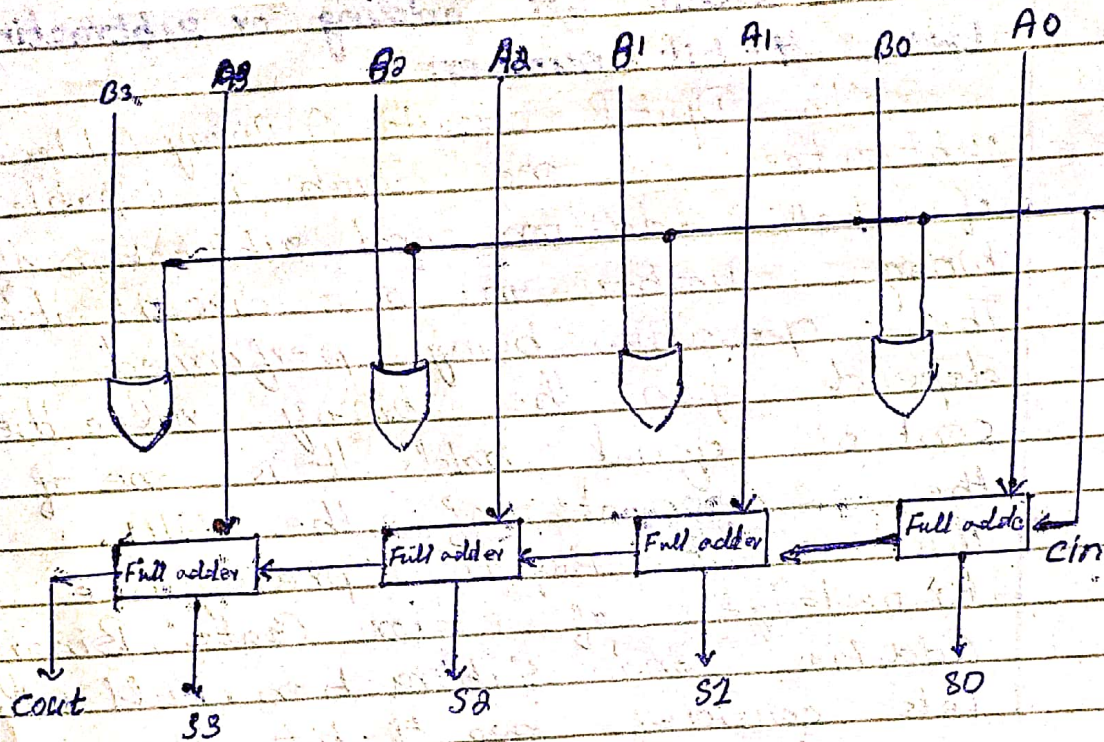 B3 A3 B2 A2 B1 A1 B0 A0
Full adder Full adder Full adder Full adde
Cin
Cout S3 S2 S1 S0